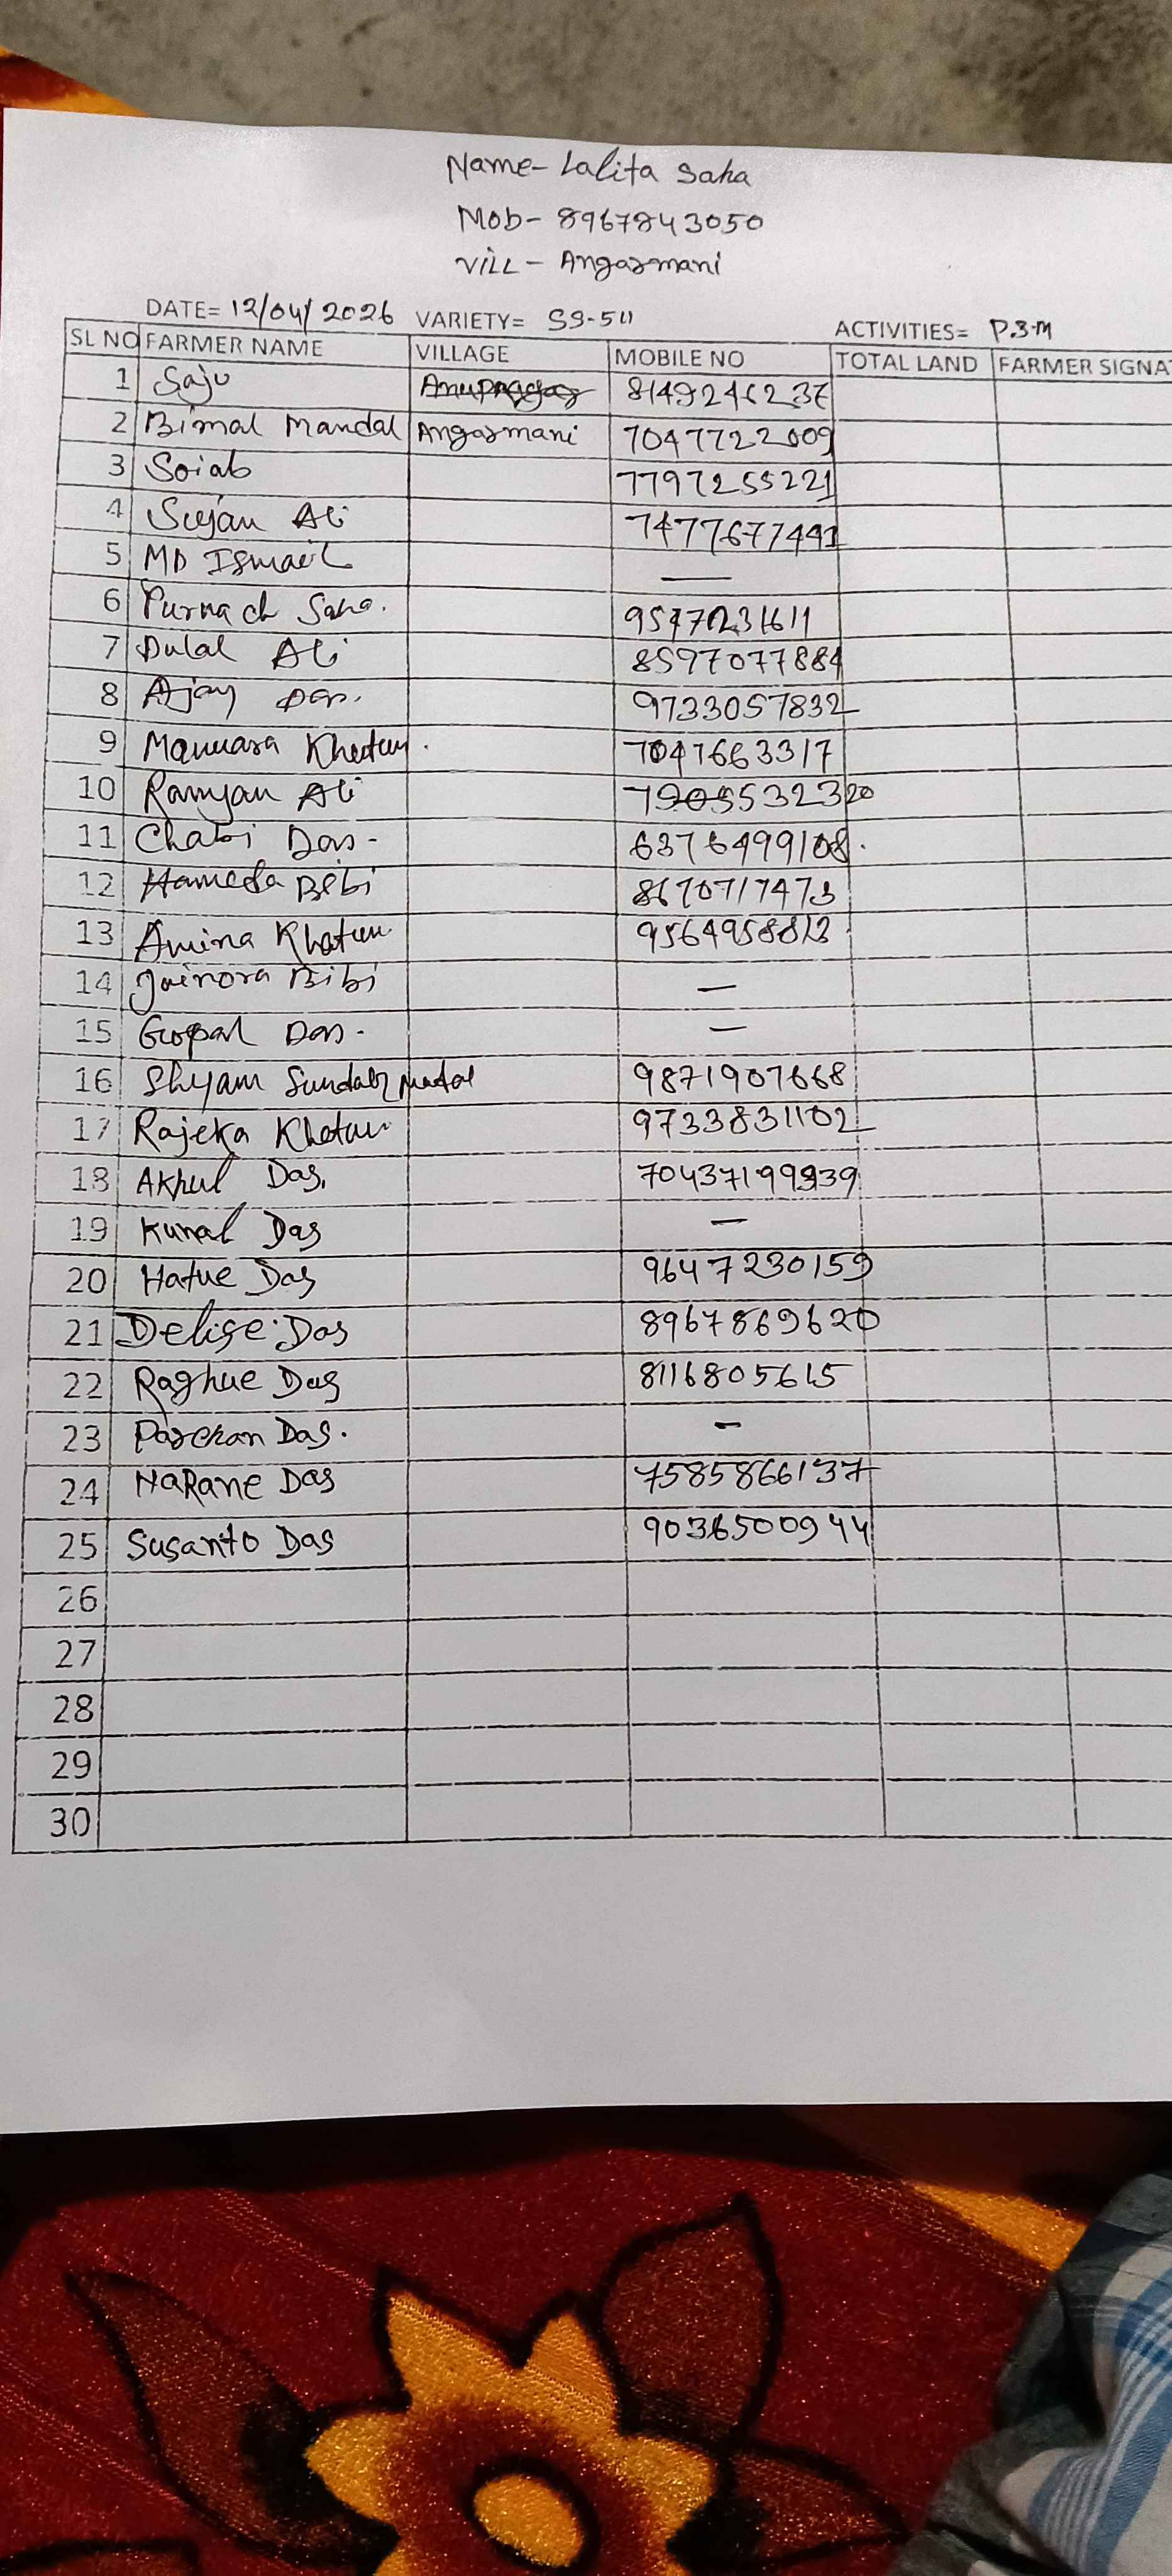 Name- Lalita Saha
Mob- 8967843050
VILL - Angarmani
DATE= 12/04/2026 VARIETY= SS-511 ACTIVITIES= P.3.M
SL NO FARMER NAME VILLAGE MOBILE NO TOTAL LAND FARMER SIGNA
1 Saju
2 Bimal Mandal Angarmani 7047722009
3 Soiab 7797255221
4 Sujan Ali 7477677441
5 MD Ismail —
6 Purna ch Saha.
7 Dulal Ali 8597077884
8 Ajay Das. 9733057832
9 Manuara Khatun. 7047663317
10 Ramjan Ali
11 Chabi Das - 6376499108.
12 Hameda Bibi 8670717473
13 Amina Khatun 9564958813
14 Jainora Bibi —
15 Gopal Das - —
16 Shyam Sundar 9871907668
17 Rajeka Khatun 9733831102
18 Akhul Das.
19 Kunal Das —
20 Hatue Das 9647230159
21 Delise Das 8967869620
22 Raghue Das 8116805615
23 Parekan Das. —
24 NaRane Das 7585866137
25 Susanto Das 9036500944
26
27
28
29
30